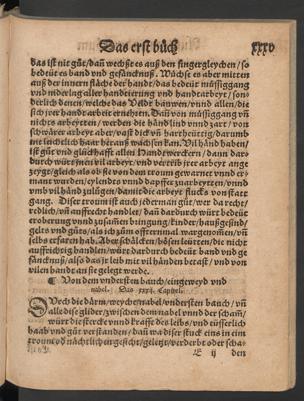 Das erst büch xxxv
das ist nit gůt/ dañ wechßt es auß den fingergleychen/ so
bedeüt es band vnd gefäncknuß. Wüchse es aber mitten
auß der innern fläche der handt/ das bedeüt müssiggang
vnd niderlag aller handtierung vnd handtarbeyt/ son-
derlich denen/ welche das Veldt bauwen/ vnnd allen/ die
sich jrer handtarbeit ernehren. Dañ von müssiggang vñ
nichts arbeytten/ werden die händ lind vnnd zart/ von
schwärer arbeyt aber/ vast dick vñ hartheüttig/ darumb
nit leichtlich haar herauß wachsen kan. Vil händ haben/
ist gůt vnd glückhafft allen Handtwerckern/ dann dar-
durch würt jnen vil arbeyt/
zeygt/ gleich als ob sie von dem troum gewarnet vnd er-
manet wurden/ eylendts vnnd dapffer zuarbeytten/ vnnd
vmb vil händ zulůgen/ damit die arbeyt flucks von statt
gang. Diser troum ist auch jederman gůt/ wer da recht/
redlich/ vnd auffrecht handlet/ dañ dardurch würt bedeüt
eroberung vnnd zůsamen bringung/ kinder/ haußgesind/
gelts vnd gůts/ als ich zum offternmal wargenomen/ vñ
selbs erfaren hab. Aber schälcken/ bösen leütten/ die nicht
auffrichtig handlen/ würt dardurch bedeüt band vnd ge
fäncknuß/ also das jr leib mit vil händen betast/ vnd von
vilen handt an sie gelegt werde.
¶ Von dem vndersten bauch/ eingeweyd vnd
nabel. Das xxxxj. Capitel.
Doch die därm/ weyche/ nabel/ vndersten bauch/ vñ
alle dise glider/ zwischen dem nabel vnd der scham/
würt die stercke vnnd krafft des leibs/ vnd eüsserlich
haab vnd gůt verstanden/ dañ wa diser stuck eins in eim
troum/ od nächtlichen gesicht/ geletzt/ verderbt oder scha-
E ij den